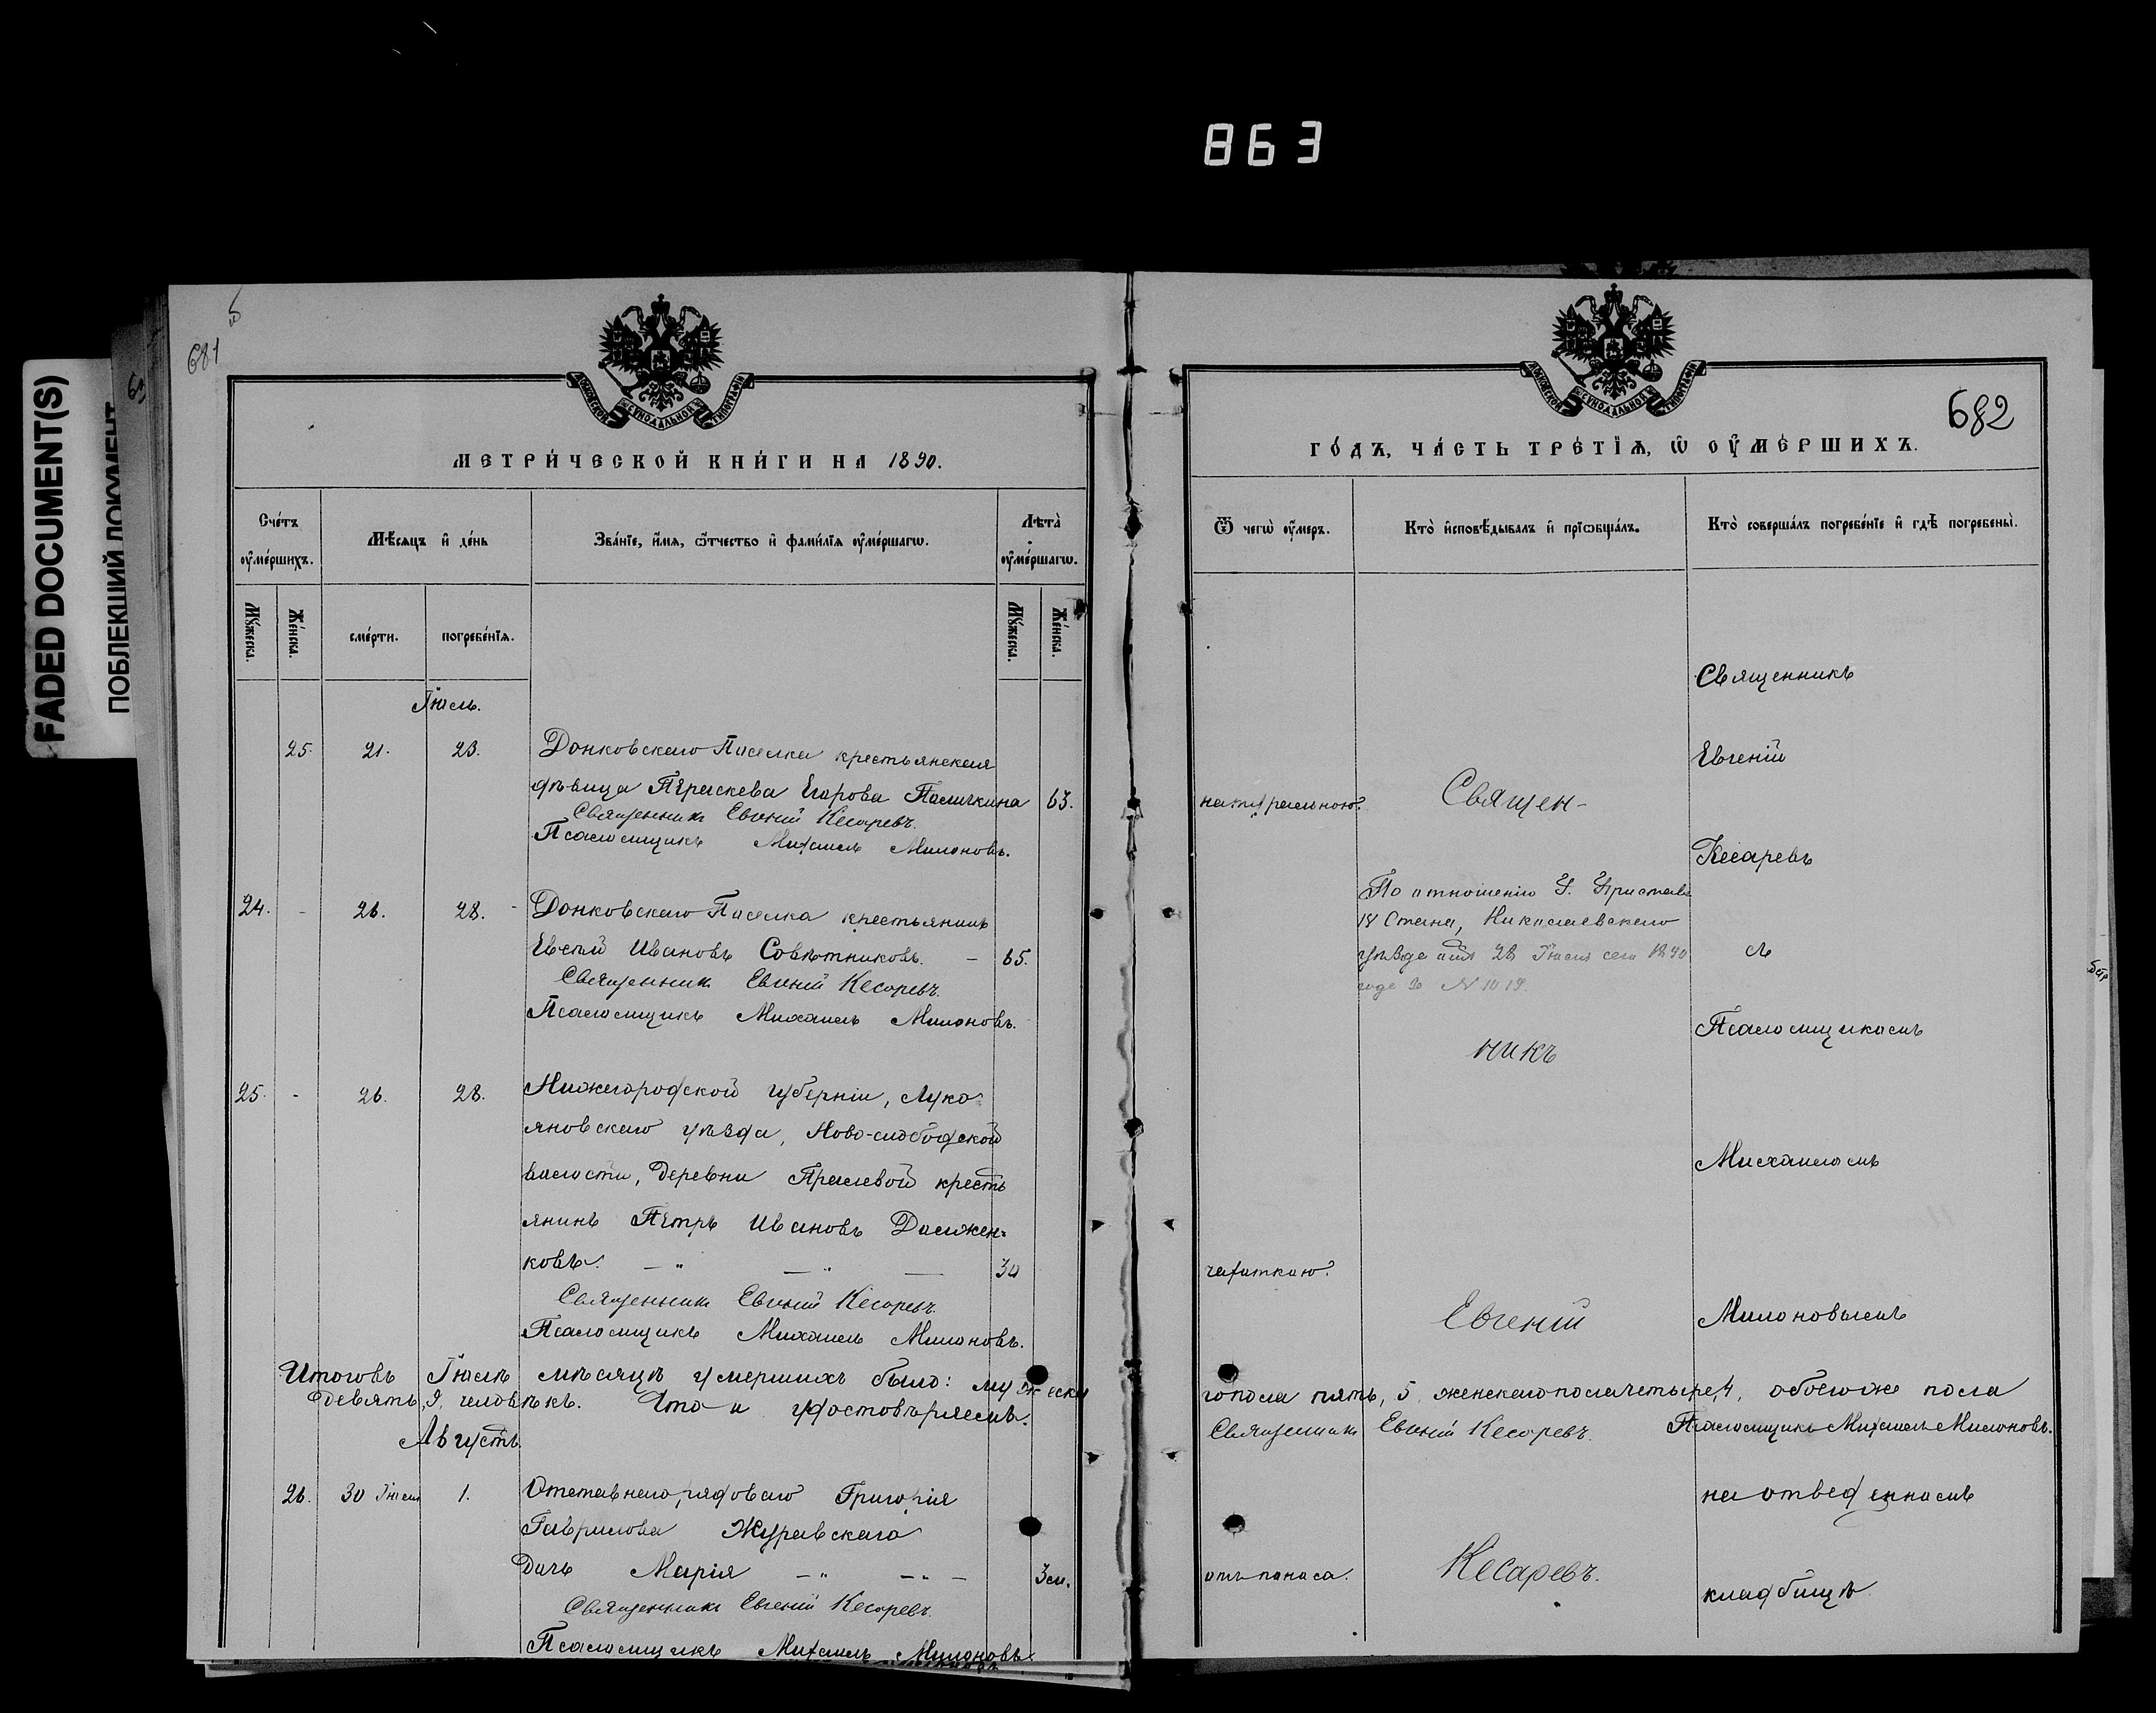 863
FADED DOCUMENT(S)
ПОБЛЕКШИЙ ДОКУМЕНТ
681
МОСКОВСКОЙ СѴНОДАЛЬНОЙ ТИПОГРАФІИ
МЕТРИ́ЧЕСКОЙ КНИ́ГИ НА 1890.
Сче́тъ оу҆ме́ршихъ.
Мѣ́сяцъ и҆ де́нь
Зва́нїе, и҆́мя, ѻ҆́тчество и҆ фами́лїя оу҆ме́ршагѡ.
Лѣта̀ оу҆ме́ршагѡ.
Мꙋ́жеска.
Же́нска.
сме́рти.
погребе́нїѧ.
Мꙋ́жеска.
Же́нска.
Іюль.
25. 21. 23. Донковскаго Поселка крестьянская
дѣвица Параскева Егорова Паличкина 63.
Священникъ Евгеній Кесаревъ.
Псаломщикъ Михаилъ Милоновъ.
24. - 26. 28. Донковскаго Поселка крестьянинъ
Евсей Ивановъ Совѣтниковъ. - 65.
Священникъ Евгеній Кесаревъ.
Псаломщикъ Михаилъ Милоновъ.
25. - 26. 28. Нижегородской губерніи, Луко
яновскаго уѣзда, Ново-слободской
волости, деревни крестья
янинъ Петръ Ивановъ Должен=
ковъ. 30
Священникъ Евгеній Кесаревъ.
Псаломщикъ Михаилъ Милоновъ.
Итого въ Іюлѣ мѣсяцѣ умершихъ было: мужеска
девять, 9, человѣкъ. Что и удостовѣряемъ.
Августъ.
26. 30 Іюля 1. Отставнаго рядоваго Григорія
Гаврилова Журавскаго
дочь Марія 3 м.
Священникъ Евгеній Кесаревъ.
Псаломщикъ Михаилъ Милоновъ
МОСКОВСКОЙ СѴНОДАЛЬНОЙ ТИПОГРАФІИ
682
ГО́ДЪ, ЧА́СТЬ ТРЕ́ТЇѦ, Ѡ҆ ОУ҆МЕ́РШИХЪ.
Ѿ чегѡ̀ оу҆́меръ.
Кто̀ и҆сповѣ́дывалъ и҆ прїѡбща́лъ.
Кто̀ соверша́лъ погребе́нїе и҆ гдѣ̀ погребены̀.
Священникъ
Евгеній
натуральною. Священ-
Кесаревъ
По отношенію Г. Пристава
Стана, Николаевскаго
уѣзда отъ 28 Іюля сего 1890
года за N 1019.
съ
Псаломщикомъ
никъ
Михаиломъ
чахоткою.
Евгеній
Милоновымъ
го пола пять, 5, женскаго пола четыре, 4, обоего же пола
Священникъ Евгеній Кесаревъ. Псаломщикъ Михаилъ Милоновъ.
на отведенномъ
отъ поноса. Кесаревъ.
кладбищѣ